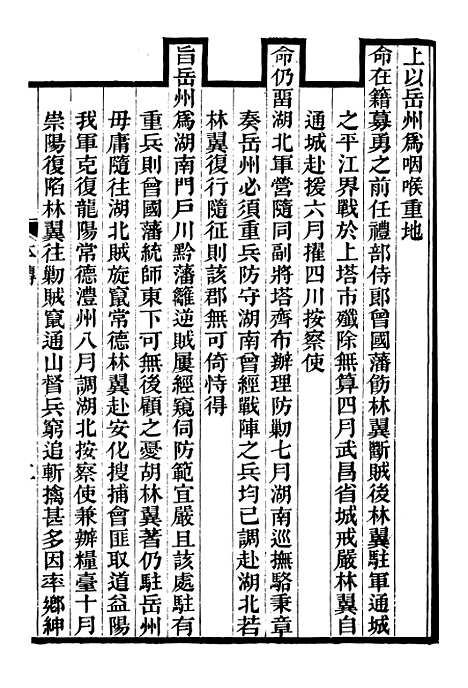 上以岳州爲咽喉重地
命在籍募勇之前任禮部侍郎曾國藩飭林翼斷賊後林翼駐軍通城
之平江界戰於上塔市殲除無算四月武昌省城戒嚴林翼自
通城赴援六月擢四川按察使
命仍留湖北軍營隨同副將塔齊布辦理防勦七月湖南巡撫駱秉章
奏岳州必須重兵防守湖南曾經戰陣之兵均已調赴湖北若
林翼復行隨征則該郡無可倚恃得
旨岳州爲湖南門戶川黔藩籬逆賊屢經窺伺防範宜嚴且該處駐有
重兵則曾國藩統師東下可無後顧之憂胡林翼著仍駐岳州
毋庸隨往湖北賊旋竄常德林翼赴安化搜捕會匪取道益陽
我軍克復龍陽常德澧州八月調湖北按察使兼辦糧臺十月
崇陽復陷林翼往勦賊竄通山督兵窮追斬擒甚多因率鄉紳
本傳